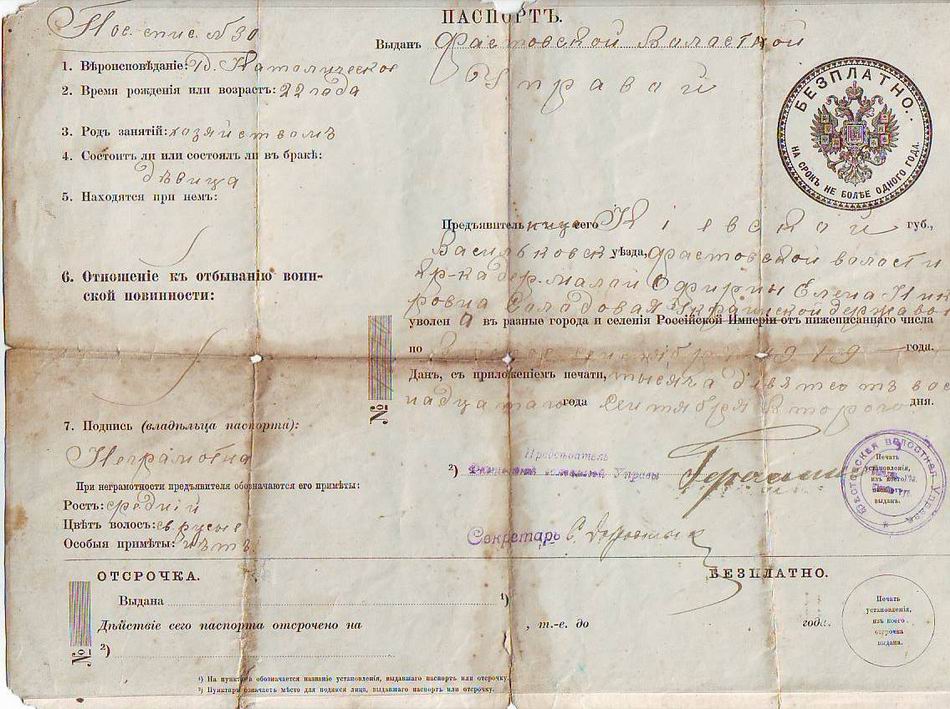 Пос. спис. № 30
ПАСПОРТЪ.
Выданъ Фастовской Волостной
Управой
1. Вѣроисповѣданіе: Католическое
2. Время рожденія или возрастъ: 22 года
3. Родъ занятій: хозяйствомъ
4. Состоитъ ли или состоялъ ли въ бракѣ:
дѣвица
5. Находятся при немъ:
6. Отношеніе къ отбыванію воин-
ской повинности:
7. Подпись (владѣльца паспорта):
Неграмотна
При неграмотности предъявителя обозначаются его примѣты:
Ростъ: средній
Цвѣтъ волосъ: св русые
Особыя примѣты: нѣтъ
БЕЗПЛАТНО.
НА СРОКЪ НЕ БОЛѢЕ ОДНОГО ГОДА.
Предъявительница сего Кіевской губ.,
Васильковск уѣзда, Фастовской волости
кр-ка дер. Малой Офирны Елена
Саладовая Украинской державой
уволена въ разные города и селенія Россійской Имперіи отъ нижеписаннаго числа
по сентября 1919 года.
Данъ, съ приложеніемъ печати, тысяча девятьсотъ вос
надцатаго года Сентября второго дня.
№
Предсѣдатель
²) Управы
Секретарь
Печать
установленія,
изъ коего
выданъ.
ОТСРОЧКА.
БЕЗПЛАТНО.
Выдана ¹)
Дѣйствіе сего паспорта отсрочено на , т.-е. до года.
№ ²)
Печать
установленія,
изъ коего
отсрочка
выдана.
¹) На пунктирѣ обозначается названіе установленія, выдавшаго паспортъ или отсрочку.
²) Пунктиръ означаетъ мѣсто для подписи лица, выдавшаго паспортъ или отсрочку.